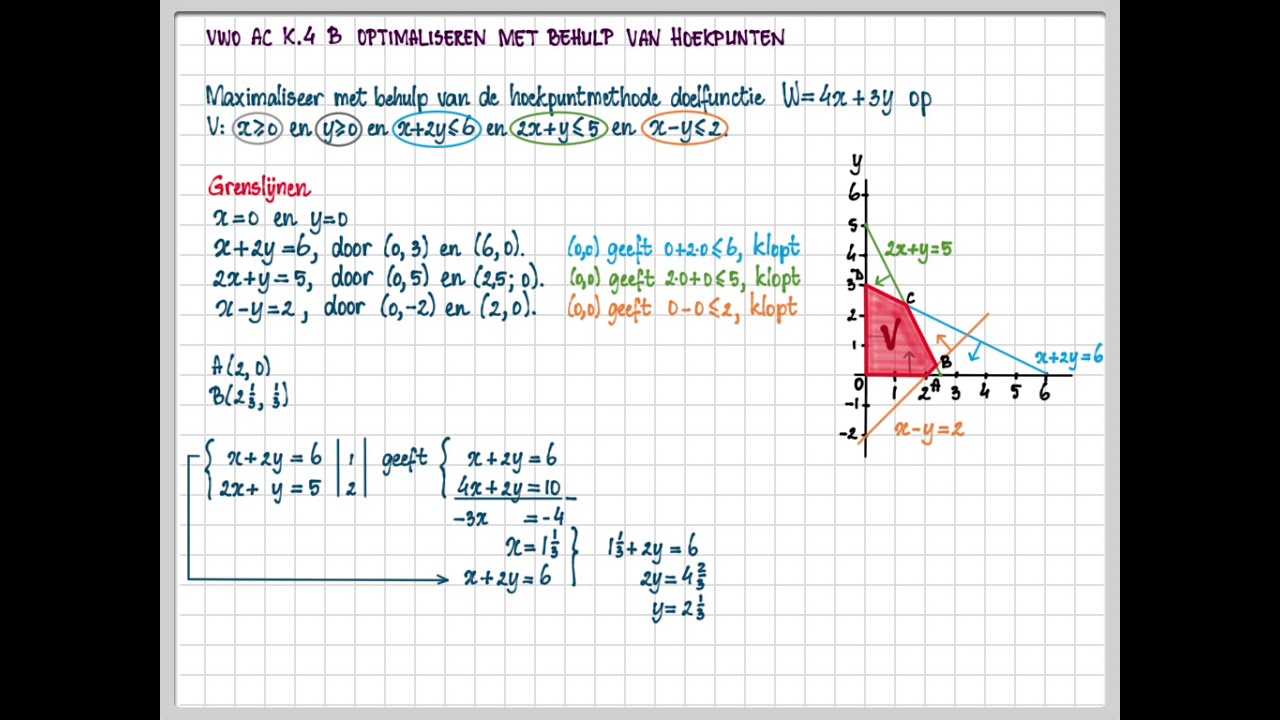 VWO AC K.4 B OPTIMALISEREN MET BEHULP VAN HOEKPUNTEN
Maximaliseer met behulp van de hoekpuntmethode doelfunctie W=4x+3y op
V: x≥0 en y≥0 en x+2y≤6 en 2x+y≤5 en x-y≤2.
Grenslijnen
x=0 en y=0
x+2y=6, door (0,3) en (6,0). (0,0) geeft 0+2·0≤6, klopt
2x+y=5, door (0,5) en (2,5; 0). (0,0) geeft 2·0+0≤5, klopt
x-y=2, door (0,-2) en (2,0). (0,0) geeft 0-0≤2, klopt
A(2,0)
B(2 1/3, 1/3)
x+2y=6 | 1 | geeft x+2y=6
2x+ y=5 | 2 | 4x+2y=10
-3x =-4
x=1 1/3 } 1 1/3+2y=6
x+2y=6 2y=4 2/3
y=2 1/3
y
6
5
2x+y=5
4
3 D
C
2
V
1
B
x+2y=6
0 1 2 A 3 4 5 6
-1
-2
x-y=2